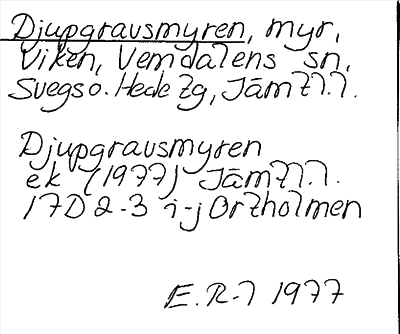 Djupgravsmyren, myr,
Viken, Vemdalens sn,
Svegs o. Hede tg, Jämtl. l.
Djupgravsmyren
ek (1977) Jämtl. l.
17D 2-3 i-j Örtholmen
E. R-l 1977